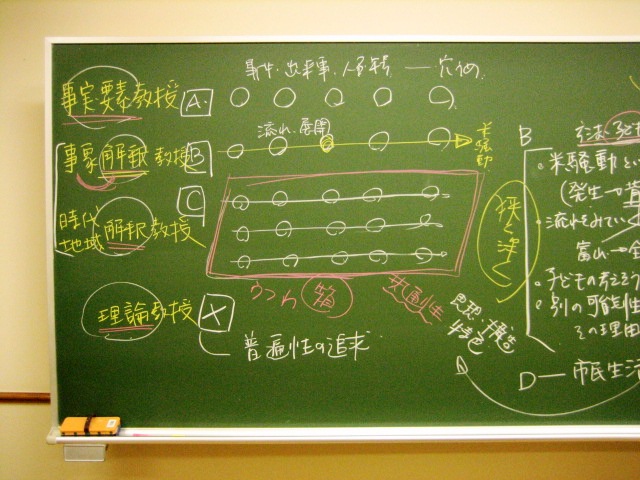 事件・出来事・人名・年号 ── 穴うめ
事実・要素教授 A
流れ・展開
事象解釈教授 B
米騒動
時代 地域 解釈教授 C
うつわ 箱 共通性
狭く深く
理論教授 X
普遍性の追求
思想・構造
特色
B
・米騒動と
(発生→
・流れをみていく
富山→全
・子どもの考えそう
・別の可能性
その理由
D ── 市民生活